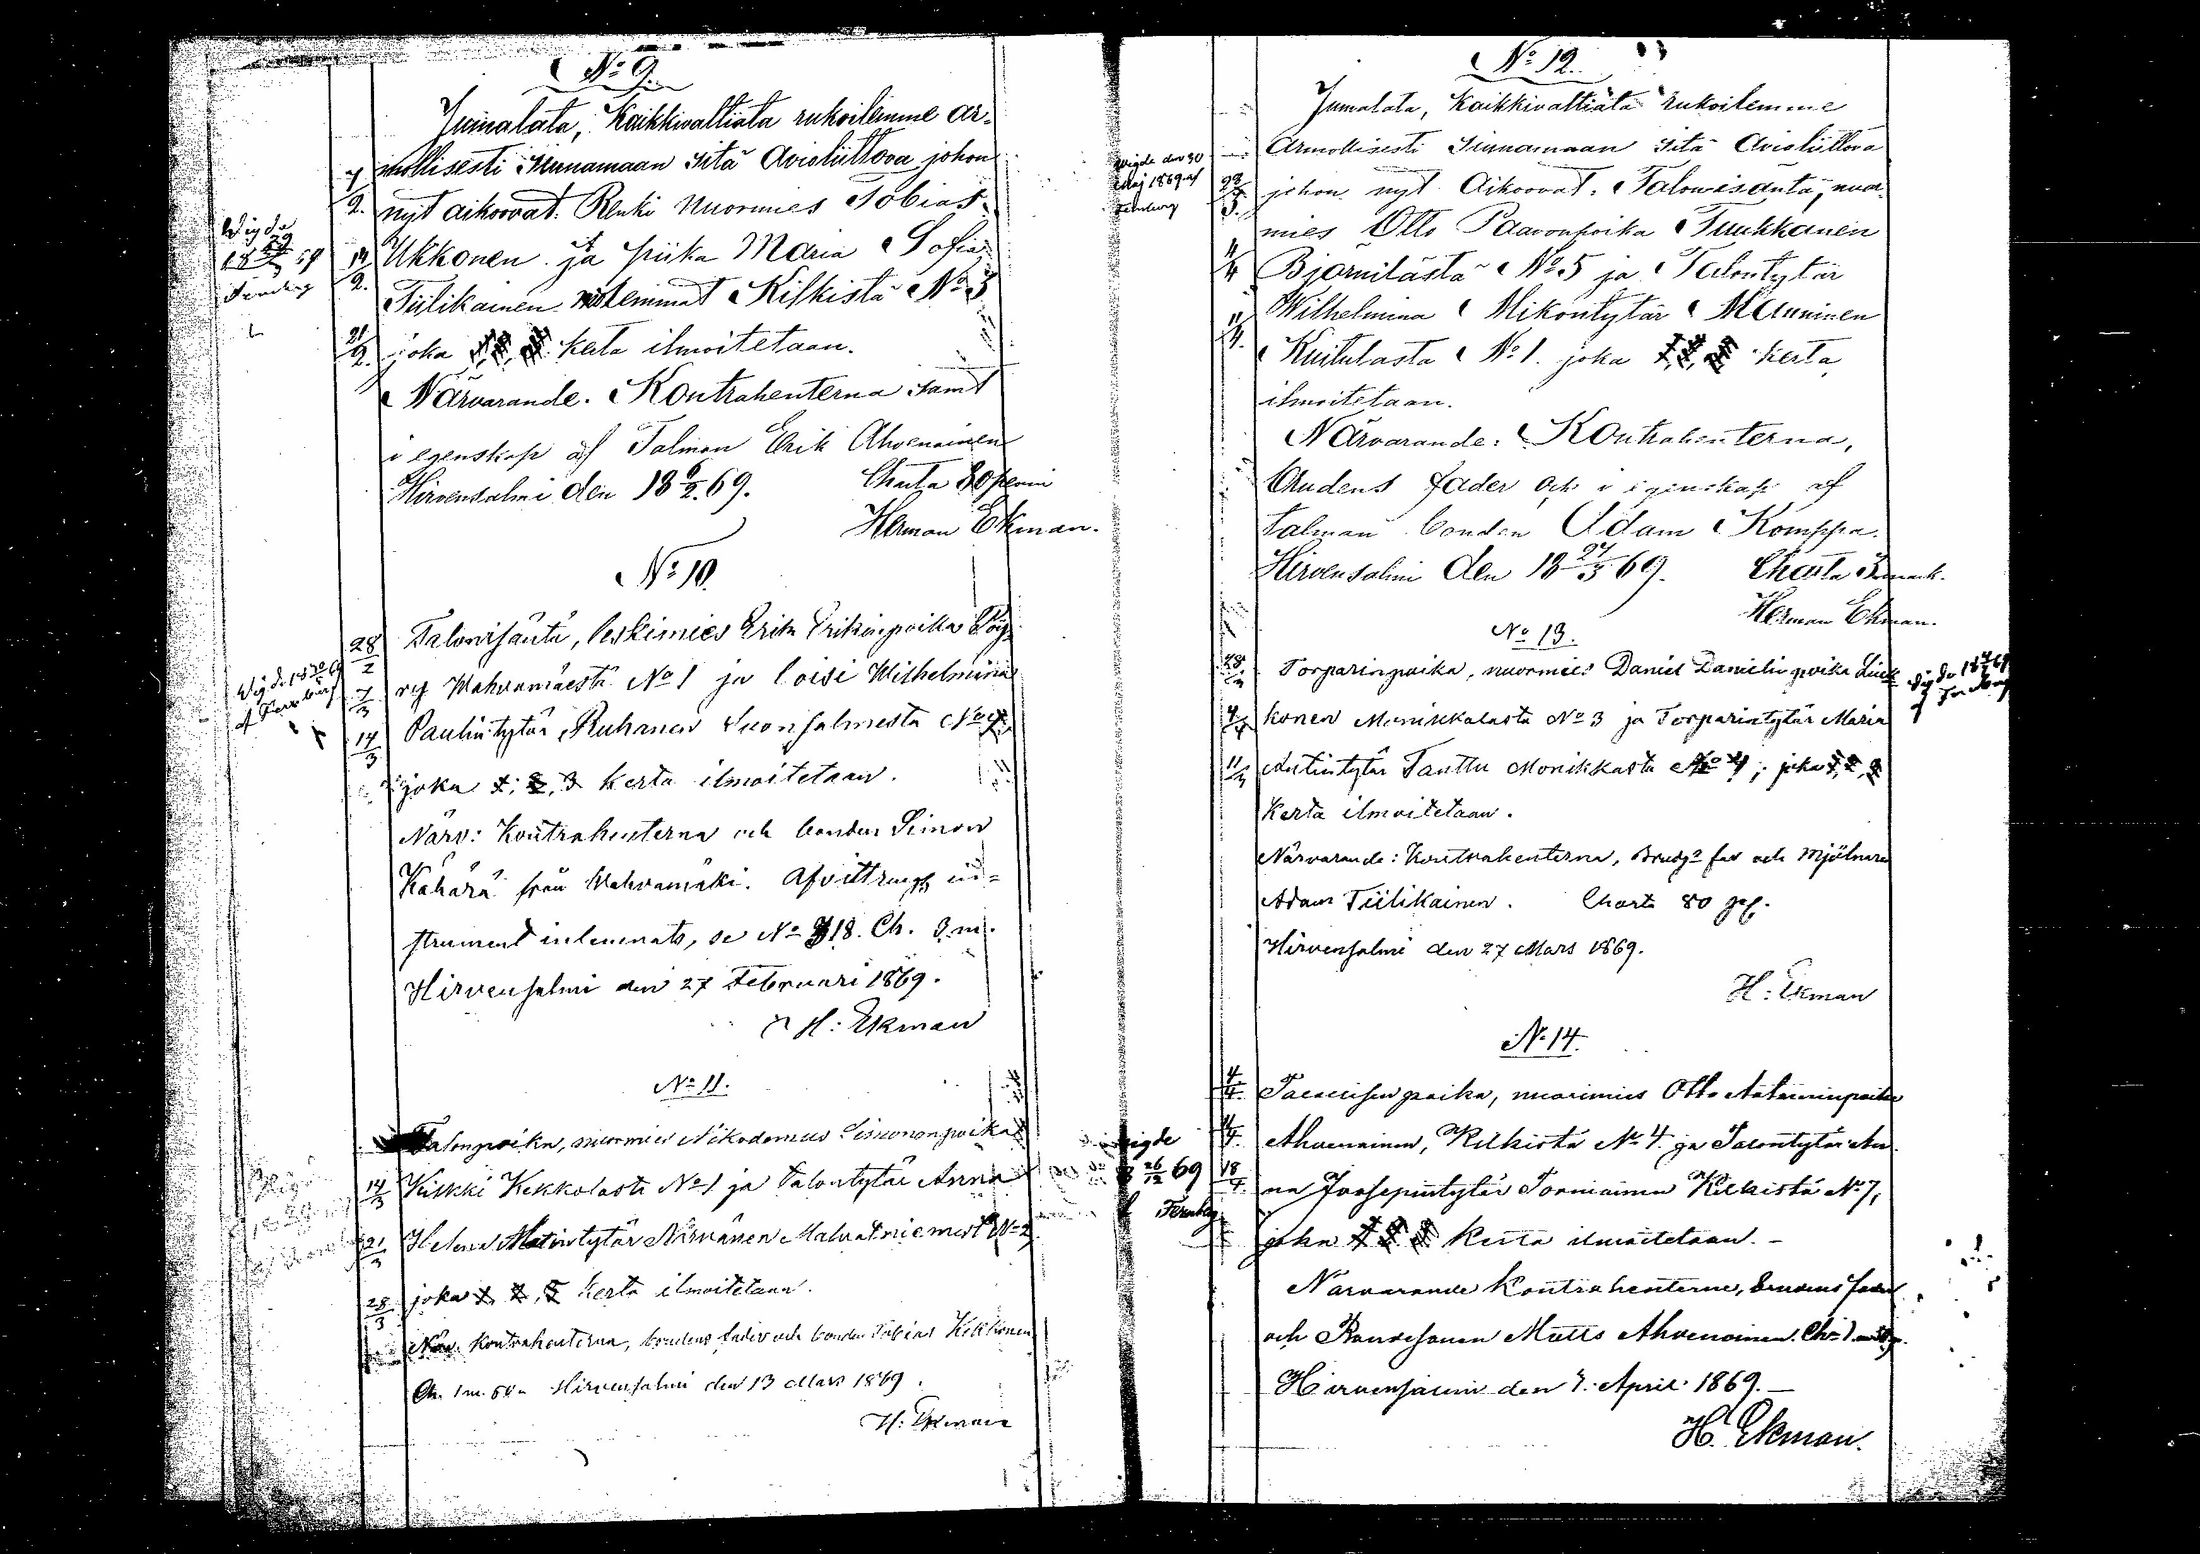 No 9.
Jumalata, Kaikkivaltiata rukoilemme ar-
mollisesti Siunamaan sitä Avioliittova johon
7/2. nyt aikoovat. Renki nuormies Tobias
Wigde
14/2. Ukkonen ja piika Maria Sofia
Tiilikainen molemmat Kilkistä No 3
21/2. joka kerta ilmoitetaan.
Närvarande. Kontrahenterna samt
i egenskap af Talman Erik Ahvenainen
Hirvensalmi den 18 6/2. 69. Charta 80 penni
Herman Ekman.
No 10.
28/2 Talonisäntä, leskimies Erik Erikinpoika Pöy-
7/3 ry Wahvamäestä No 1 ja loisi Wilhelmina
14/3 Paulintytär Ruhanen Suonsalmesta No
joka 1, 2, 3 kerta ilmoitetaan.
Närv: Kontrahenterna och bonden Simon
Kähärä från Wahvamäki. Afvittrings in-
strument inlemnats, se No 18. Ch. 3 m.
Hirvensalmi den 27 Februari 1869.
H: Ekman
No 11.
Talonpoika, nuormies Nikodemus Simononpoika
14/3 Kilkki Kekkolasta No 1 ja Talontytär Anna
21/3 Helena Matintytär Närvänen Malvatniemest No 2
28/3 joka 1, 2, 3 kerta ilmoitetaan.
Närv. Kontrahenterna, brudens fader och bonden Tobias Kekkonen
Ch. 1 m. Hirvensalmi den 13 Mars 1869.
H: Ekman
No 12.
Jumalata, Kaikkivaltiata rukoilemme
Armollisesti Siunamaan sitä Avioliittova
Wigde den 30
Maj 1869 af
28/3. johon nyt Aikoovat: Talonisäntä, nuor-
mies Otto Paavonpoika Tuukkanen
4/4 Bjornilästä No 5 ja Talontytär
11/4. Wilhelmina Mikontytär Manninen
Kuitulasta No 1. joka kerta
ilmoitetaan.
Närvarande: Kontrahenterna,
Brudens fader och i egenskap af
talman bonden Adam Komppa.
Hirvensalmi den 18 27/3 69. Charta 3 mark.
Herman Ekman.
No 13.
28/3 Torparinpoika, nuormies Daniel Danielinpoika Liuk-
4/4 konen Monikkalasta No 3 ja Torparintytär Maria
11/4 Antintytär Tanttu Monikkasta No 4; joka 1, 2, 3
kerta ilmoitetaan.
Närvarande: Kontrahenterna, Brudgs far och Mjölnare
Adam Tiilikainen. Charta 80 p.
Hirvensalmi den 27 Mars 1869.
H: Ekman
No 14.
4/4 poika, nuorimies Otto
11/4. Ahvenainen, Kilkistä No 4. ja Talontytär An-
Wigde
26/12 69
18/4. na Joosepintytär Torniainen Kilkistä No 7,
joka 1 2 3 kerta ilmoitetaan. -
Närvarande Kontrahenterne, brudens fader
och Matts Ahvenainen.
Hirvensalmi den 7. April 1869. -
H. Ekman.